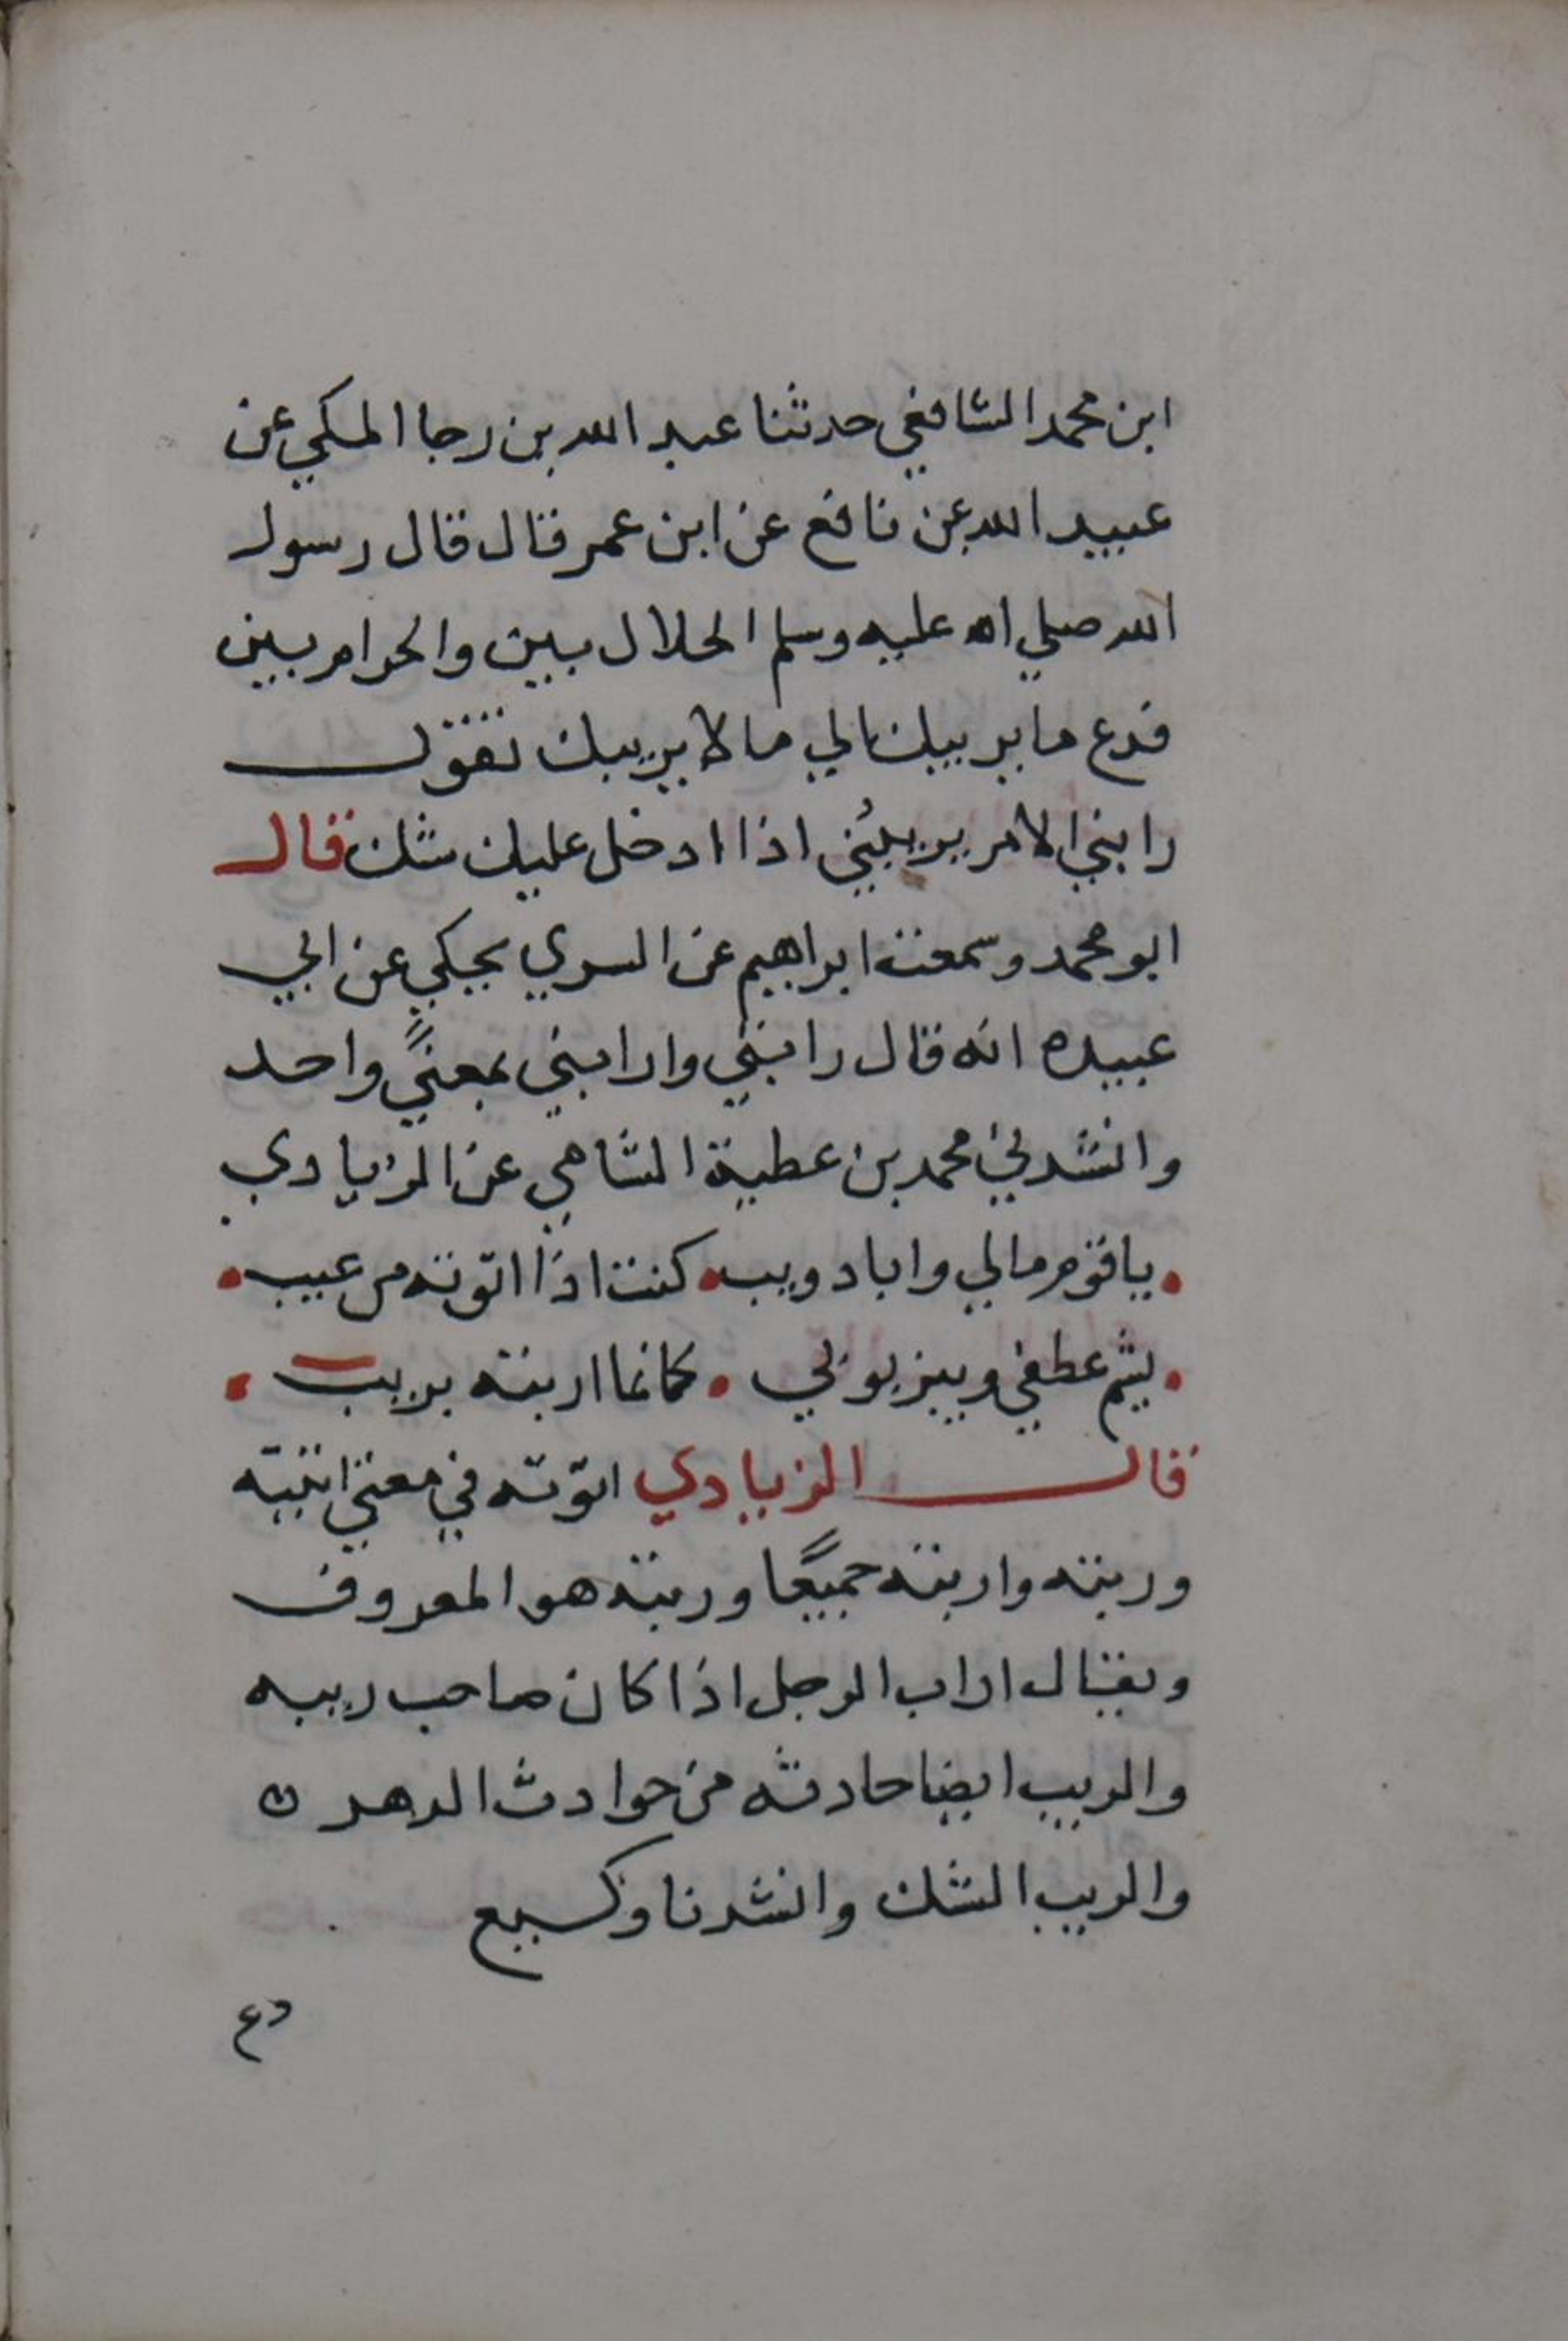 ابن محمد الشافعي حدثنا عبد الله بن رجا المكي عن
عبيد الله عن نافع عن ابن عمر قال قال رسول
الله صلي الله عليه وسلم الحلال بين والحرام بين
فدع ما يريبك الي ما لا يريبك تقول
رابني الامر يريبني اذا ادخل عليك شك قال
ابو محمد وسمعت ابراهيم عن السري يحكي عن ابي
عبيده انه قال رابني وارابني بمعنًي واحد
وانشدني محمد بن عطية الشامي عن الزيادي
• يا قوم مالي وابا دويب • كنت اذا اتوته من غيب •
• يشم عطفي ويبز بوثي • كانما اربته بريب •
قال الزيادي اتوته في معني اتيته
وربته واربته جميعًا وربته هو المعروف
ويقال اراب الرجل اذا كان صاحب ريبه
والريب ايضا حادثه من حوادث الدهر ن
والريب الشك وانشدنا وكيع
دع